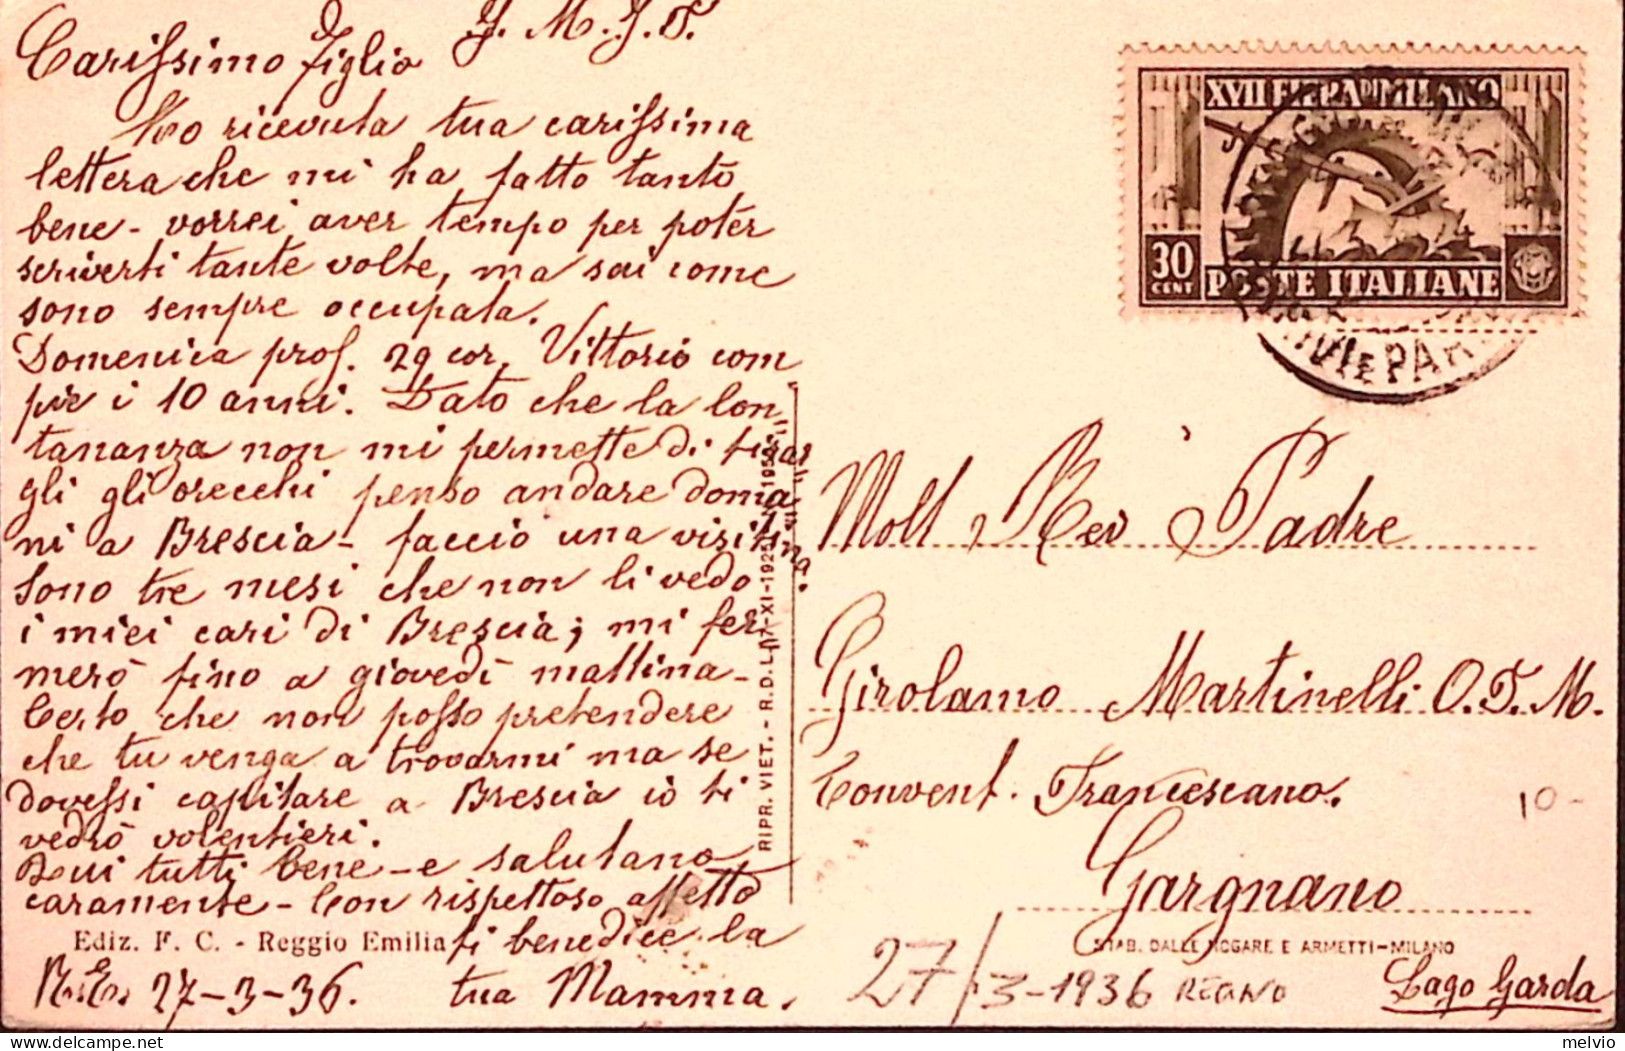 J. M. J. F.
Carissimo figlio
Ho ricevuta tua carissima
lettera che mi ha fatto tanto
bene - vorrei aver tempo per poter
scriverti tante volte, ma sai come
sono sempre occupata.
Domenica pros. 29 cor. Vittorio com
pie i 10 anni. Dato che la lon
tananza non mi permette di tirar
gli gli orecchi penso andare doma
ni a Brescia - faccio una visitina.
Sono tre mesi che non li vedo
i miei cari di Brescia; mi fer
merò fino a giovedì mattina -
Certo che non posso pretendere
che tu venga a trovarmi ma se
dovessi capitare a Brescia io ti
vedrò volentieri.
Qui tutti bene - e salutano
caramente - Con rispettoso affetto
ti benedice la
tua Mamma.
R.E. 27-3-36.
Ediz. F. C. - Reggio Emilia
RIPR. VIET. - R. D. L. 7-XI-1925
XVII FIERA DI MILANO
30
CENT
POSTE ITALIANE
Molt Rev Padre
Girolamo Martinelli O. F. M.
Convent. Francescano.
Gargnano
Lago Garda
STAB. DALLE NOGARE E ARMETTI-MILANO
10-
27/3-1936 REGNO
melvio